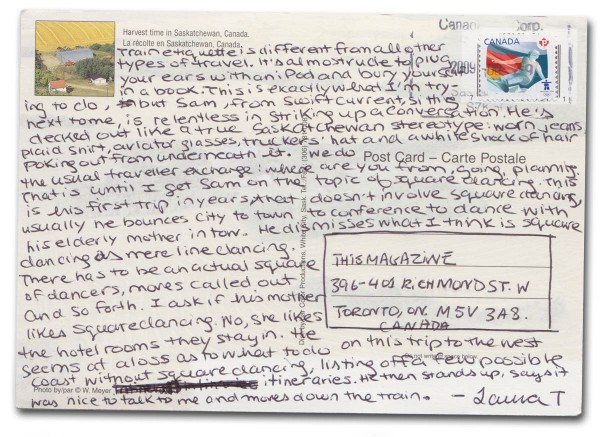 Harvest time in Saskatchewan, Canada.
La récolte en Saskatchewan, Canada.
Train etiquette is different from all other
types of travel. It's almost rude to plug
your ears with an iPod and bury yourself
in a book. This is exactly what I'm try-
ing to do, but Sam, from Swift Current, sitting
next to me, is relentless in striking up a conversation. He's
decked out like a true Saskatchewan stereotype: worn jeans,
plaid shirt, aviator glasses, truckers' hat and a white shock of hair
poking out from underneath it. We do
the usual traveller exchange: where are you from, going, planning.
That is until I get Sam on the topic of square dancing. This
is his first trip in years that doesn't involve square dancing,
usually he bounces city to town to conference to dance with
his elderly mother in tow. He dismisses what I think is square
dancing as mere line dancing.
There has to be an actual square
of dancers, moves called out
and so forth. I ask if his mother
likes square dancing. No, she likes
the hotel rooms they stay in. He
seems at a loss as to what to do on this trip to the west
coast without square dancing, listing off a few possible
itineraries. He then stands up, says it
was nice to talk to me and moves down the train. – Laura T
Post Card – Carte Postale
THIS MAGAZINE
396-401 RICHMOND ST. W
TORONTO, ON. M5V 3A8.
CANADA
CANADA
P
Canad Corp.
2009
Photo by/par © W. Meyer